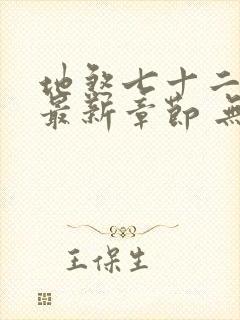 地煞七十二
最新章节 無
王保生